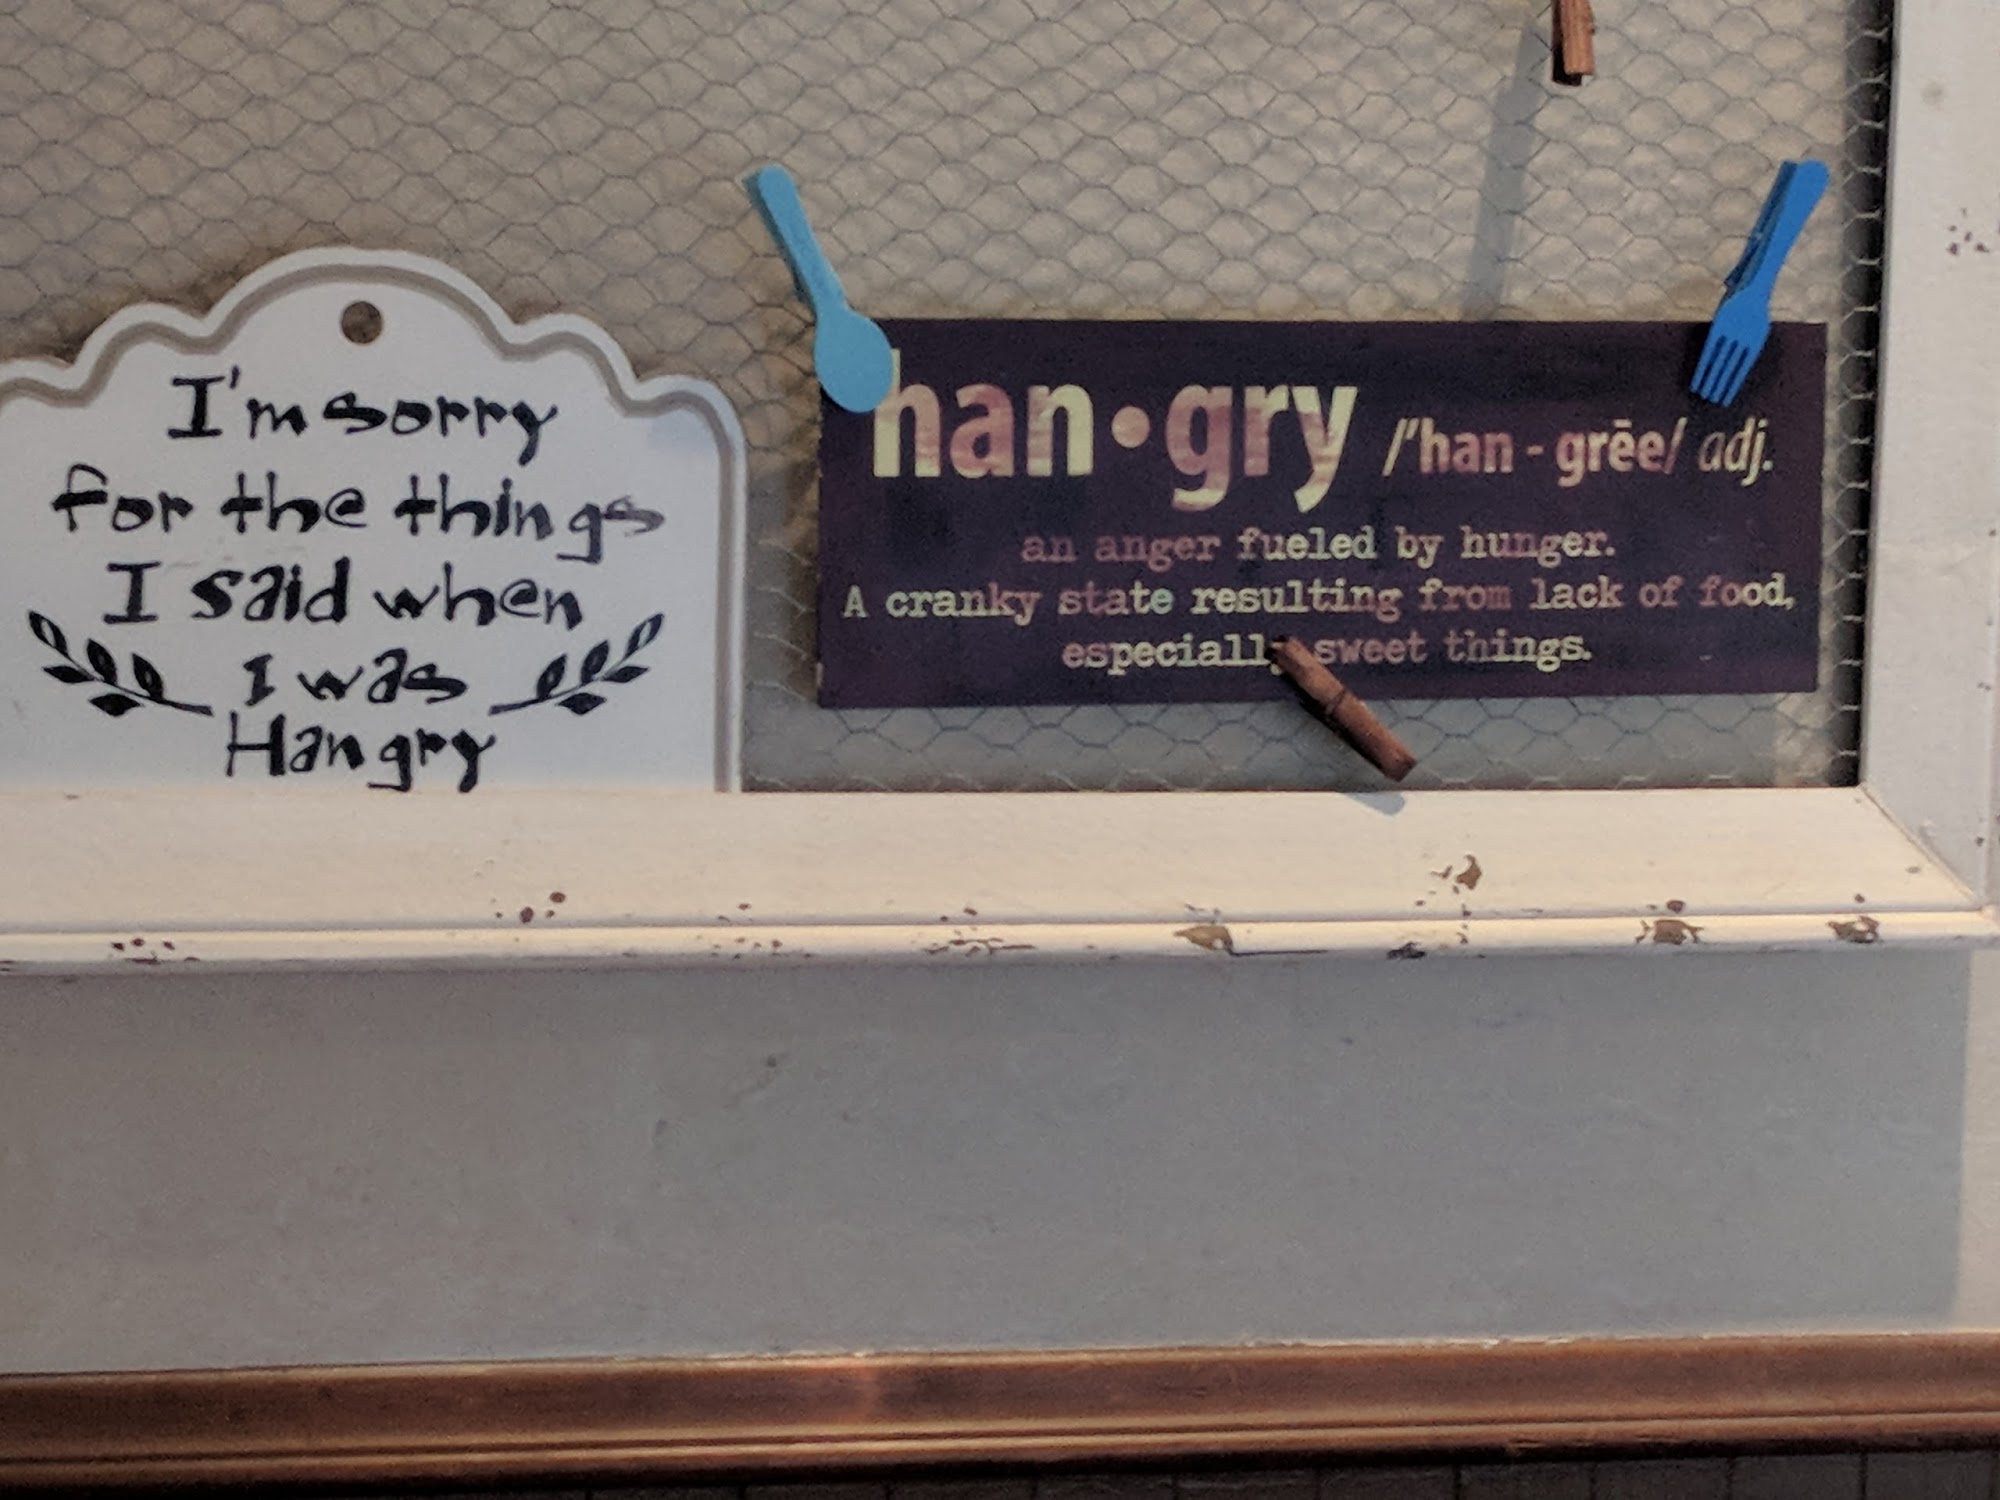 I'm sorry
for the things
I said when
I was
Hangry
han•gry /'han - grēe/ adj.
an anger fueled by hunger.
A cranky state resulting from lack of food,
especially sweet things.